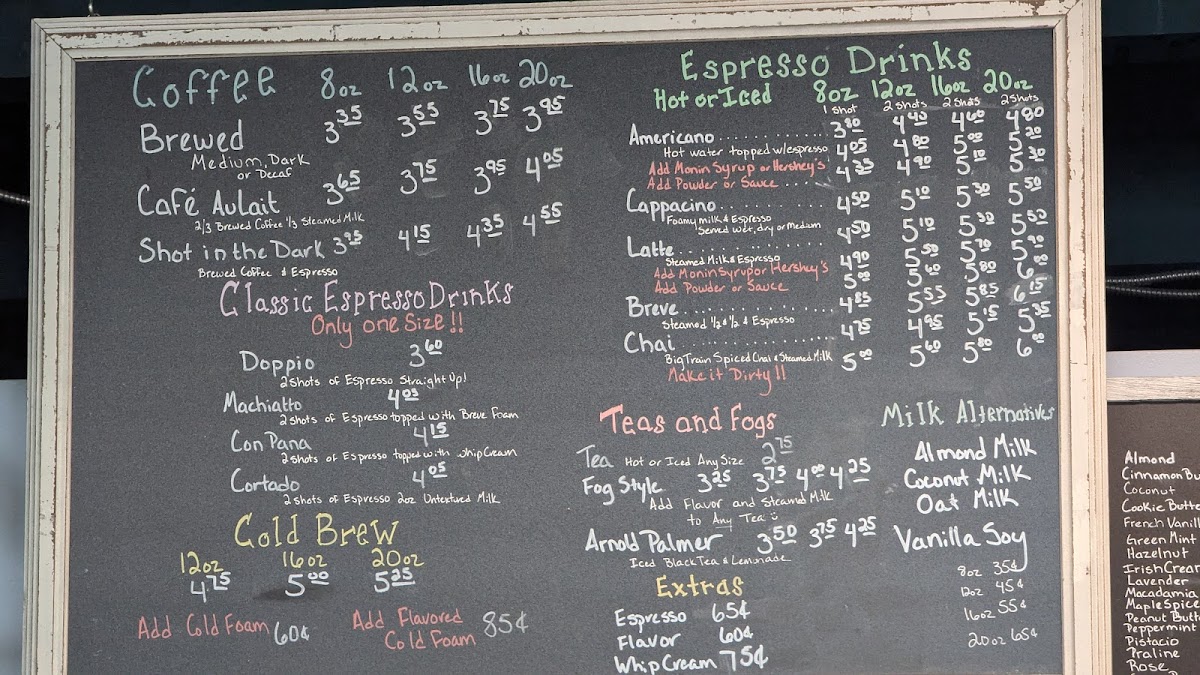 Coffee 8oz 12oz 16oz 20oz
Brewed 3.35 3.55 3.75 3.95
Medium, Dark
or Decaf
Café AuLait 3.65 3.75 3.95 4.05
2/3 Brewed Coffee 1/3 Steamed Milk
Shot in the Dark 3.95 4.15 4.35 4.55
Brewed Coffee & Espresso
Classic Espresso Drinks
Only one Size!!
Doppio 3.60
2 shots of Espresso Straight up!
Machiatto 4.05
2 shots of Espresso topped with Breve Foam
Con Pana 4.15
2 shots of Espresso topped with whip Cream
Cortado 4.05
2 shots of Espresso 2oz Untextured Milk
Cold Brew
12oz 16oz 20oz
4.75 5.00 5.25
Add Cold Foam 60¢
Add Flavored
Cold Foam 85¢
Espresso Drinks
Hot or Iced 8oz 12oz 16oz 20oz
1 shot 2 shots 2 shots 2 shots
Americano 3.80 4.40 4.60 4.80
Hot water topped w/espresso 4.05 4.80 5.00 5.20
Add Monin Syrup or Hershey's 4.25 4.90 5.10 5.30
Add Powder or Sauce
Cappacino 4.50 5.10 5.30 5.50
Foamy milk & Espresso
Served wet, dry or medium
Latte 4.50 5.10 5.30 5.50
Steamed Milk & Espresso
Add Monin Syrup or Hershey's 4.90 5.50 5.70 5.90
Add Powder or Sauce 5.00 5.60 5.80
Breve 4.85 5.55 5.85 6.15
Steamed 1/2 & 1/2 & Espresso
Chai 4.75 4.95 5.15 5.35
Big Train Spiced Chai & Steamed Milk
Make it Dirty!! 5.00 5.60 5.80 6.00
Teas and Fogs
Tea Hot or Iced Any Size 2.75
Fog Style 3.25 3.75 4.00 4.25
Add Flavor and Steamed Milk
to Any Tea
Arnold Palmer 3.50 3.75 4.25
Iced Black Tea & Lemonade
Extras
Espresso 65¢
Flavor 60¢
Whip Cream 75¢
Milk Alternatives
Almond Milk
Coconut Milk
Oat Milk
Vanilla Soy
8oz 35¢
12oz 45¢
16oz 55¢
20oz 65¢
Almond
Cinnamon Bu
Coconut
Cookie Butte
French Vanill
Green Mint
Hazelnut
Irish Crear
Lavender
Macadamia
Maple Spice
Peanut Butte
Peppermint
Pistacio
Praline
Rose